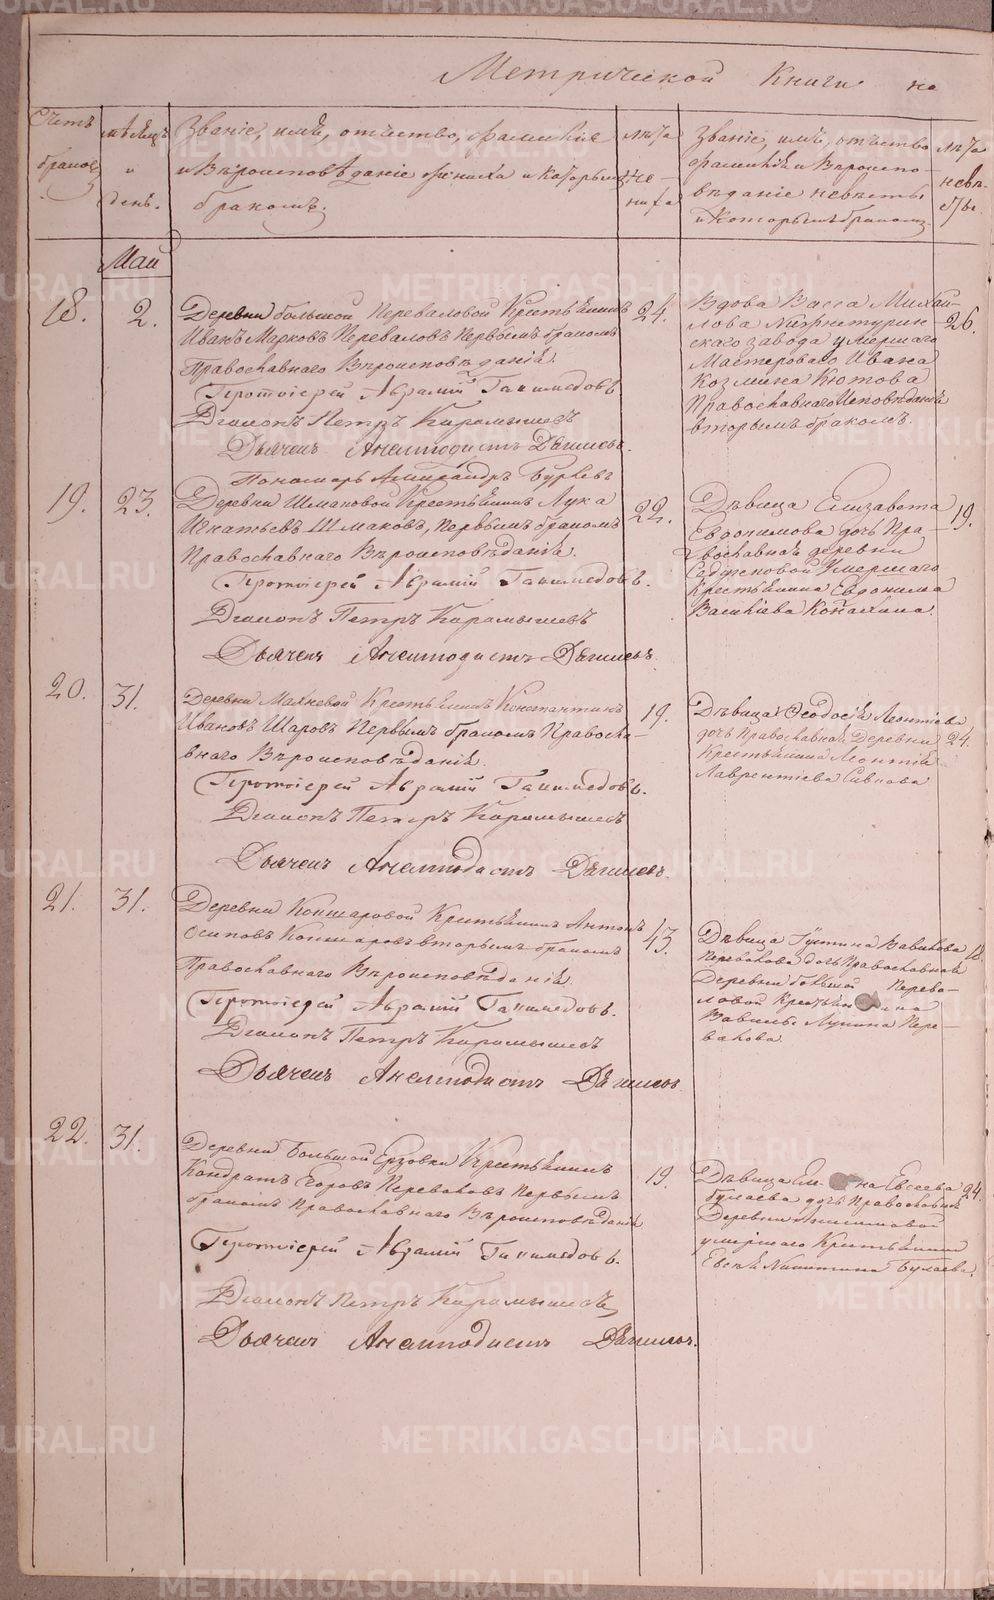 Метрической Книги на
Счетъ браковъ
мѣсяцъ и день.
Званіе, имѣ, отчество, фамилію
и Вѣроисповѣданіе жениха и которымъ
бракомъ.
лѣта жениха
Званіе, имѣ, отчество
фамилія и Вѣроиспо-
вѣданіе невѣсты
и которымъ бракомъ
лѣта невѣсты
Май
18. 2.
Деревни большой Переваловой Крестьянинъ
Иванъ Марковъ Переваловъ Первымъ бракомъ
Православнаго Вѣроисповѣданія.
Протоіерей Аврамій Ганимедовъ
Діаконъ Петръ Карамышевъ
Дьячекъ Анемподистъ Дягилевъ.
Пономарь Александръ Бурлевъ
24.
Вдова Васса Михай-
лова Нижнетурин-
скаго завода умершаго
Мастероваго Ивана
Козмина Кютова
Православнаго Исповѣданія
вторымъ бракомъ.
26.
19. 23.
Деревни Шмаковой Крестьянинъ Лука
Игнатьевъ Шмаковъ, Первымъ бракомъ
Православнаго Вѣроисповѣданія.
Протоіерей Аврамій Ганимедовъ.
Діаконъ Петръ Карамышевъ
Дьячекъ Анемподистъ Дягилевъ.
22.
Дѣвица Елизавета
Евдокимова дочь Пра-
вославной деревни
умершаго
Крестьянина Евдокима
Васильева
19.
20. 31.
Деревни Махневой Крестьянинъ Константинъ
Ивановъ Шаровъ Первымъ бракомъ Правосла-
внаго Вѣроисповѣданія.
Протоіерей Аврамій Ганимедовъ.
Діаконъ Петръ Карамышевъ
Дьячекъ Анемподистъ Дягилевъ.
19.
Дѣвица Ѳеодосія Леонтіева
дочь Православная Деревни
Крестьянина Леонтія
Лаврентіева Сивкова
24.
21. 31.
Деревни Кокшаровой Крестьянинъ Антонъ
Осиповъ Кокшаровъ вторымъ бракомъ
Православнаго Вѣроисповѣданія.
Протоіерей Аврамій Ганимедовъ.
Діаконъ Петръ Карамышевъ
Дьячекъ Анемподистъ Дягилевъ
43.
Дѣвица Густина Вавилова
Перевалова дочь Православной
Деревни большой Перева-
ловой Крестьянина
Вавилы Лукина Пере-
валова.
18.
22. 31.
Деревни Большой Ерзовки Крестьянинъ
Кондратъ Егоровъ Переваловъ Первымъ
бракомъ Православнаго Вѣроисповѣданія
Протоіерей Аврамій Ганимедовъ.
Діаконъ Петръ Карамышевъ
Дьячекъ Анемподистъ Дягилевъ.
19.
Дѣвица Ел на Евсеева
Булаева дочь Православной
Деревни Анисимовой
умершаго Крестьянина
Евсея Никитина Булаева.
24.
METRIKI.GASO-URAL.RU